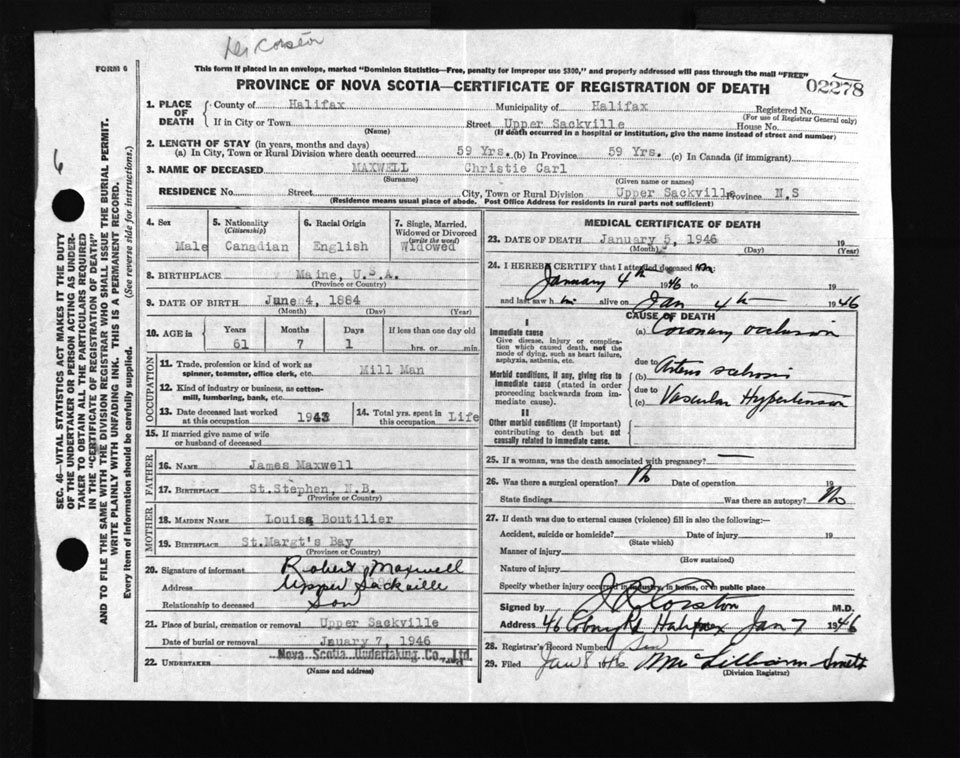 Dr Corston
FORM 6
This form if placed in an envelope, marked "Dominion Statistics—Free, penalty for improper use $300," and properly addressed will pass through the mail "FREE"
PROVINCE OF NOVA SCOTIA—CERTIFICATE OF REGISTRATION OF DEATH
02278
6
SEC. 46—VITAL STATISTICS ACT MAKES IT THE DUTY
OF THE UNDERTAKER OR PERSON ACTING AS UNDER-
TAKER TO OBTAIN ALL THE PARTICULARS REQUIRED
IN THE "CERTIFICATE OF REGISTRATION OF DEATH"
AND TO FILE THE SAME WITH THE DIVISION REGISTRAR WHO SHALL ISSUE THE BURIAL PERMIT.
WRITE PLAINLY WITH UNFADING INK. THIS IS A PERMANENT RECORD.
Every item of information should be carefully supplied. (See reverse side for instructions.)
1. PLACE OF DEATH
County of Halifax Municipality of Halifax Registered No.
(For use of Registrar General only)
If in City or Town Street Upper Sackville House No.
(Name) (If death occurred in a hospital or institution, give the name instead of street and number)
2. LENGTH OF STAY (in years, months and days)
(a) In City, Town or Rural Division where death occurred 59 Yrs. (b) In Province 59 Yrs. (c) In Canada (if immigrant)
3. NAME OF DECEASED MAXWELL Christie Carl
(Surname) (Given name or names)
RESIDENCE No. Street City, Town or Rural Division Upper Sackville Province N.S
(Residence means usual place of abode. Post Office Address for residents in rural parts not sufficient)
4. Sex Male
5. Nationality (Citizenship) Canadian
6. Racial Origin English
7. Single, Married, Widowed or Divorced (write the word) Widowed
8. BIRTHPLACE Maine, U.S.A.
(Province or Country)
9. DATE OF BIRTH June 4, 1884
(Month) (Day) (Year)
10. AGE in Years Months Days If less than one day old
61 7 1 hrs. or min.
OCCUPATION
11. Trade, profession or kind of work as
spinner, teamster, office clerk, etc. Mill Man
12. Kind of industry or business, as cotton-
mill, lumbering, bank, etc.
13. Date deceased last worked at this occupation 1943
14. Total yrs. spent in this occupation Life
15. If married give name of wife
or husband of deceased
FATHER
16. NAME James Maxwell
17. BIRTHPLACE St.Stephen, N.B.
(Province or Country)
MOTHER
18. MAIDEN NAME Louise Boutilier
19. BIRTHPLACE St.Margt's Bay
(Province or Country)
20. Signature of informant Robert Maxwell
Address Upper Sackville
Relationship to deceased Son
21. Place of burial, cremation or removal Upper Sackville
Date of burial or removal January 7, 1946
22. UNDERTAKER Nova Scotia Undertaking Co., Ltd.
(Name and address)
MEDICAL CERTIFICATE OF DEATH
23. DATE OF DEATH January 5, 1946 19
(Month) (Day) (Year)
24. I HEREBY CERTIFY that I attended deceased from
January 4th 1946 to 19
and last saw him alive on Jan 4th 1946
CAUSE OF DEATH
I
Immediate cause
Give disease, injury or complica-
tion which caused death, not the
mode of dying, such as heart failure,
asphyxia, asthenia, etc.
(a) Coronary occlusion
due to
Morbid conditions, if any, giving rise to
immediate cause (stated in order
proceeding backwards from im-
mediate cause).
(b) Arterio sclerosis
due to
(c) Vascular Hypertension
II
Other morbid conditions (if important)
contributing to death but not
causally related to immediate cause.
25. If a woman, was the death associated with pregnancy? —
26. Was there a surgical operation? No Date of operation 19
State findings Was there an autopsy? No
27. If death was due to external causes (violence) fill in also the following:—
Accident, suicide or homicide? Date of injury 19
(State which)
Manner of injury
(How sustained)
Nature of injury
Specify whether injury occurred in industry, in home, or in public place
Signed by Corston M.D.
Address 46 Coburg Rd Halifax Jan 7 1946
28. Registrar's Record Number Six
29. Filed Jan 8 1946 Smith
(Division Registrar)